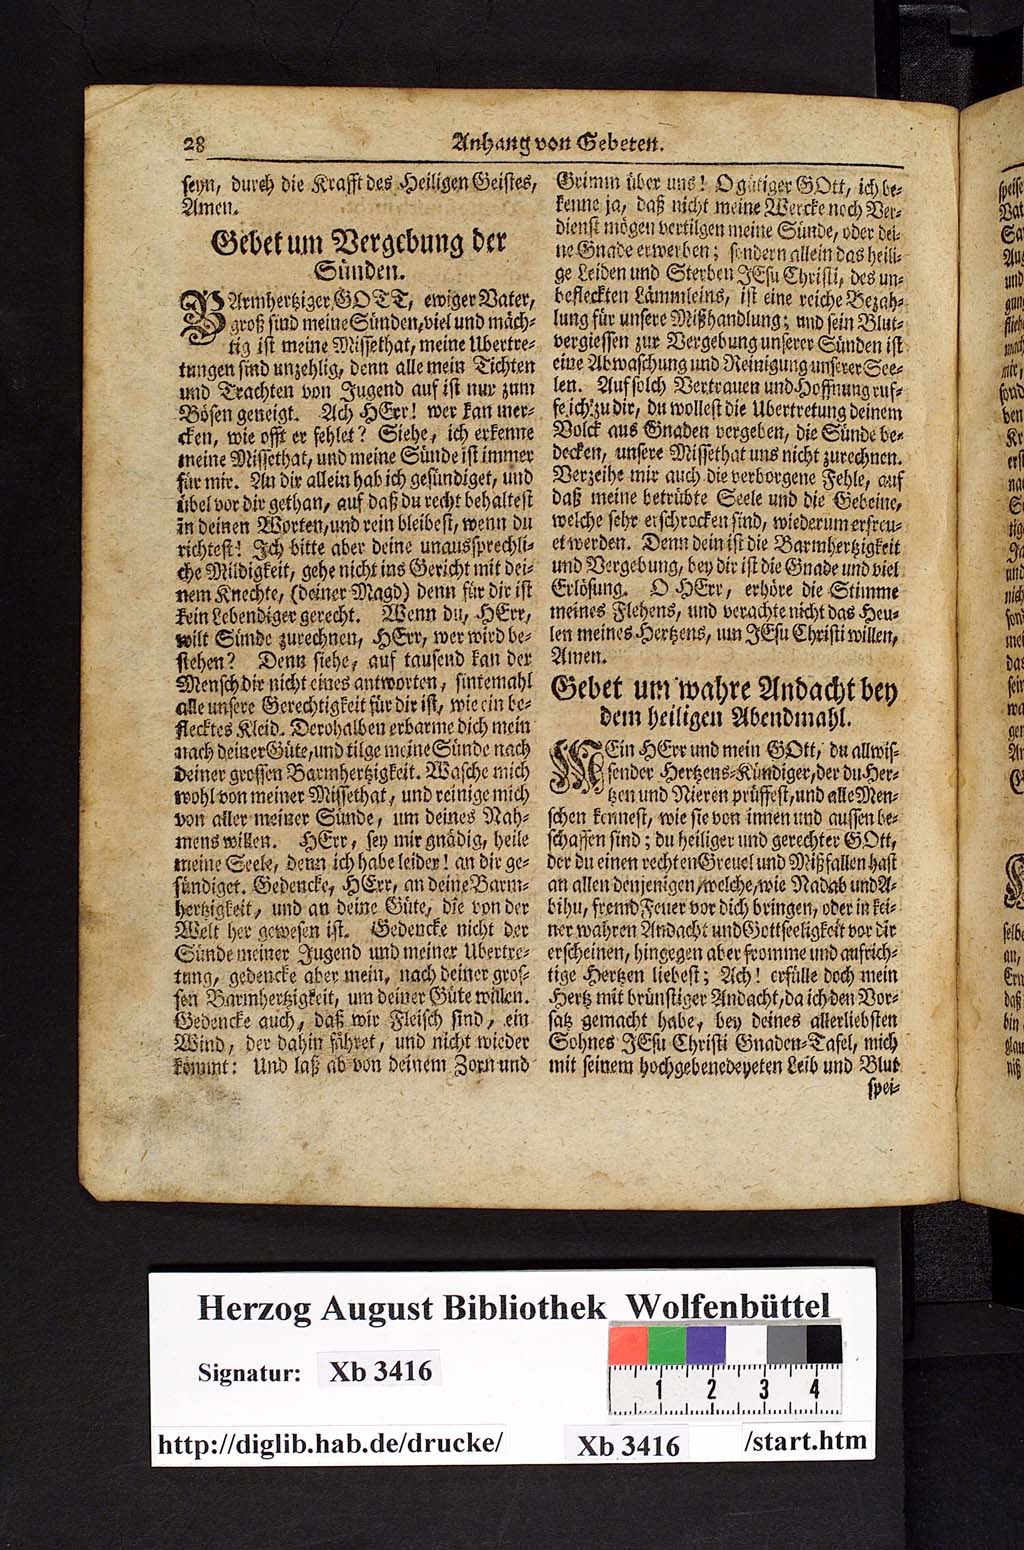 28
Anhang von Gebeten.
seyn, durch die Krafft des Heiligen Geistes,
Amen.
Gebet um Vergebung der
Sünden.
BArmhertziger GOTT, ewiger Vater,
groß sind meine Sünden, viel und mäch-
tig ist meine Missethat, meine Ubertre-
tungen sind unzehlig, denn alle mein Tichten
und Trachten von Jugend auf ist nur zum
Bösen geneigt. Ach HErr! wer kan mer-
cken, wie offt er fehlet? Siehe, ich erkenne
meine Missethat, und meine Sünde ist immer
für mir. An dir allein hab ich gesündiget, und
übel vor dir gethan, auf daß du recht behaltest
in deinen Worten, und rein bleibest, wenn du
richtest! Ich bitte aber deine unaussprechli-
che Mildigkeit, gehe nicht ins Gericht mit dei-
nem Knechte, (deiner Magd) denn für dir ist
kein Lebendiger gerecht. Wenn du, HErr,
wilt Sünde zurechnen, HErr, wer wird be-
stehen? Denn siehe, auf tausend kan der
Mensch dir nicht eines antworten, sintemahl
alle unsere Gerechtigkeit für dir ist, wie ein be-
flecktes Kleid. Derohalben erbarme dich mein
nach deiner Güte, und tilge meine Sünde nach
deiner grossen Barmhertzigkeit. Wasche mich
wohl von meiner Missethat, und reinige mich
von aller meiner Sünde, um deines Nah-
mens willen. HErr, sey mir gnädig, heile
meine Seele, denn ich habe leider! an dir ge-
sündiget. Gedencke, HErr, an deine Barm-
hertzigkeit, und an deine Güte, die von der
Welt her gewesen ist. Gedencke nicht der
Sünde meiner Jugend und meiner Ubertre-
tung, gedencke aber mein, nach deiner gros-
sen Barmhertzigkeit, um deiner Güte willen.
Gedencke auch, daß wir Fleisch sind, ein
Wind, der dahin fähret, und nicht wieder
kömmt: Und laß ab von deinem Zorn und
Grimm über uns! O gütiger GOtt, ich be-
kenne ja, daß nicht meine Wercke noch Ver-
dienst mögen vertilgen meine Sünde, oder dei-
ne Gnade erwerben; sondern allein das heili-
ge Leiden und Sterben JEsu Christi, des un-
befleckten Lämmleins, ist eine reiche Bezah-
lung für unsere Mißhandlung; und sein Blut-
vergiessen zur Vergebung unserer Sünden ist
eine Abwaschung und Reinigung unserer See-
len. Auf solch Vertrauen und Hoffnung ruf-
fe ich zu dir, du wollest die Ubertretung deinem
Volck aus Gnaden vergeben, die Sünde be-
decken, unsere Missethat uns nicht zurechnen.
Verzeihe mir auch die verborgene Fehle, auf
daß meine betrübte Seele und die Gebeine,
welche sehr erschrocken sind, wiederum erfreu-
et werden. Denn dein ist die Barmhertzigkeit
und Vergebung, bey dir ist die Gnade und viel
Erlösung. O HErr, erhöre die Stimme
meines Flehens, und verachte nicht das Heu-
len meines Hertzens, um JEsu Christi willen,
Amen.
Gebet um wahre Andacht bey
dem heiligen Abendmahl.
MEin HErr und mein GOtt, du allwis-
sender Hertzens-Kündiger, der du Her-
tzen und Nieren prüffest, und alle Men-
schen kennest, wie sie von innen und aussen be-
schaffen sind; du heiliger und gerechter GOtt,
der du einen rechten Greuel und Mißfallen hast
an allen denjenigen, welche, wie Nadab und A-
bihu, fremd Feuer vor dich bringen, oder in kei-
ner wahren Andacht und Gottseeligkeit vor dir
erscheinen, hingegen aber fromme und aufrich-
tige Hertzen liebest; Ach! erfülle doch mein
Hertz mit brünstiger Andacht, da ich den Vor-
satz gemacht habe, bey deines allerliebsten
Sohnes JEsu Christi Gnaden-Tafel, mich
mit seinem hochgebenedeyeten Leib und Blut
spei-
Herzog August Bibliothek Wolfenbüttel
Signatur: Xb 3416
1 2 3 4
http://diglib.hab.de/drucke/ Xb 3416 /start.htm